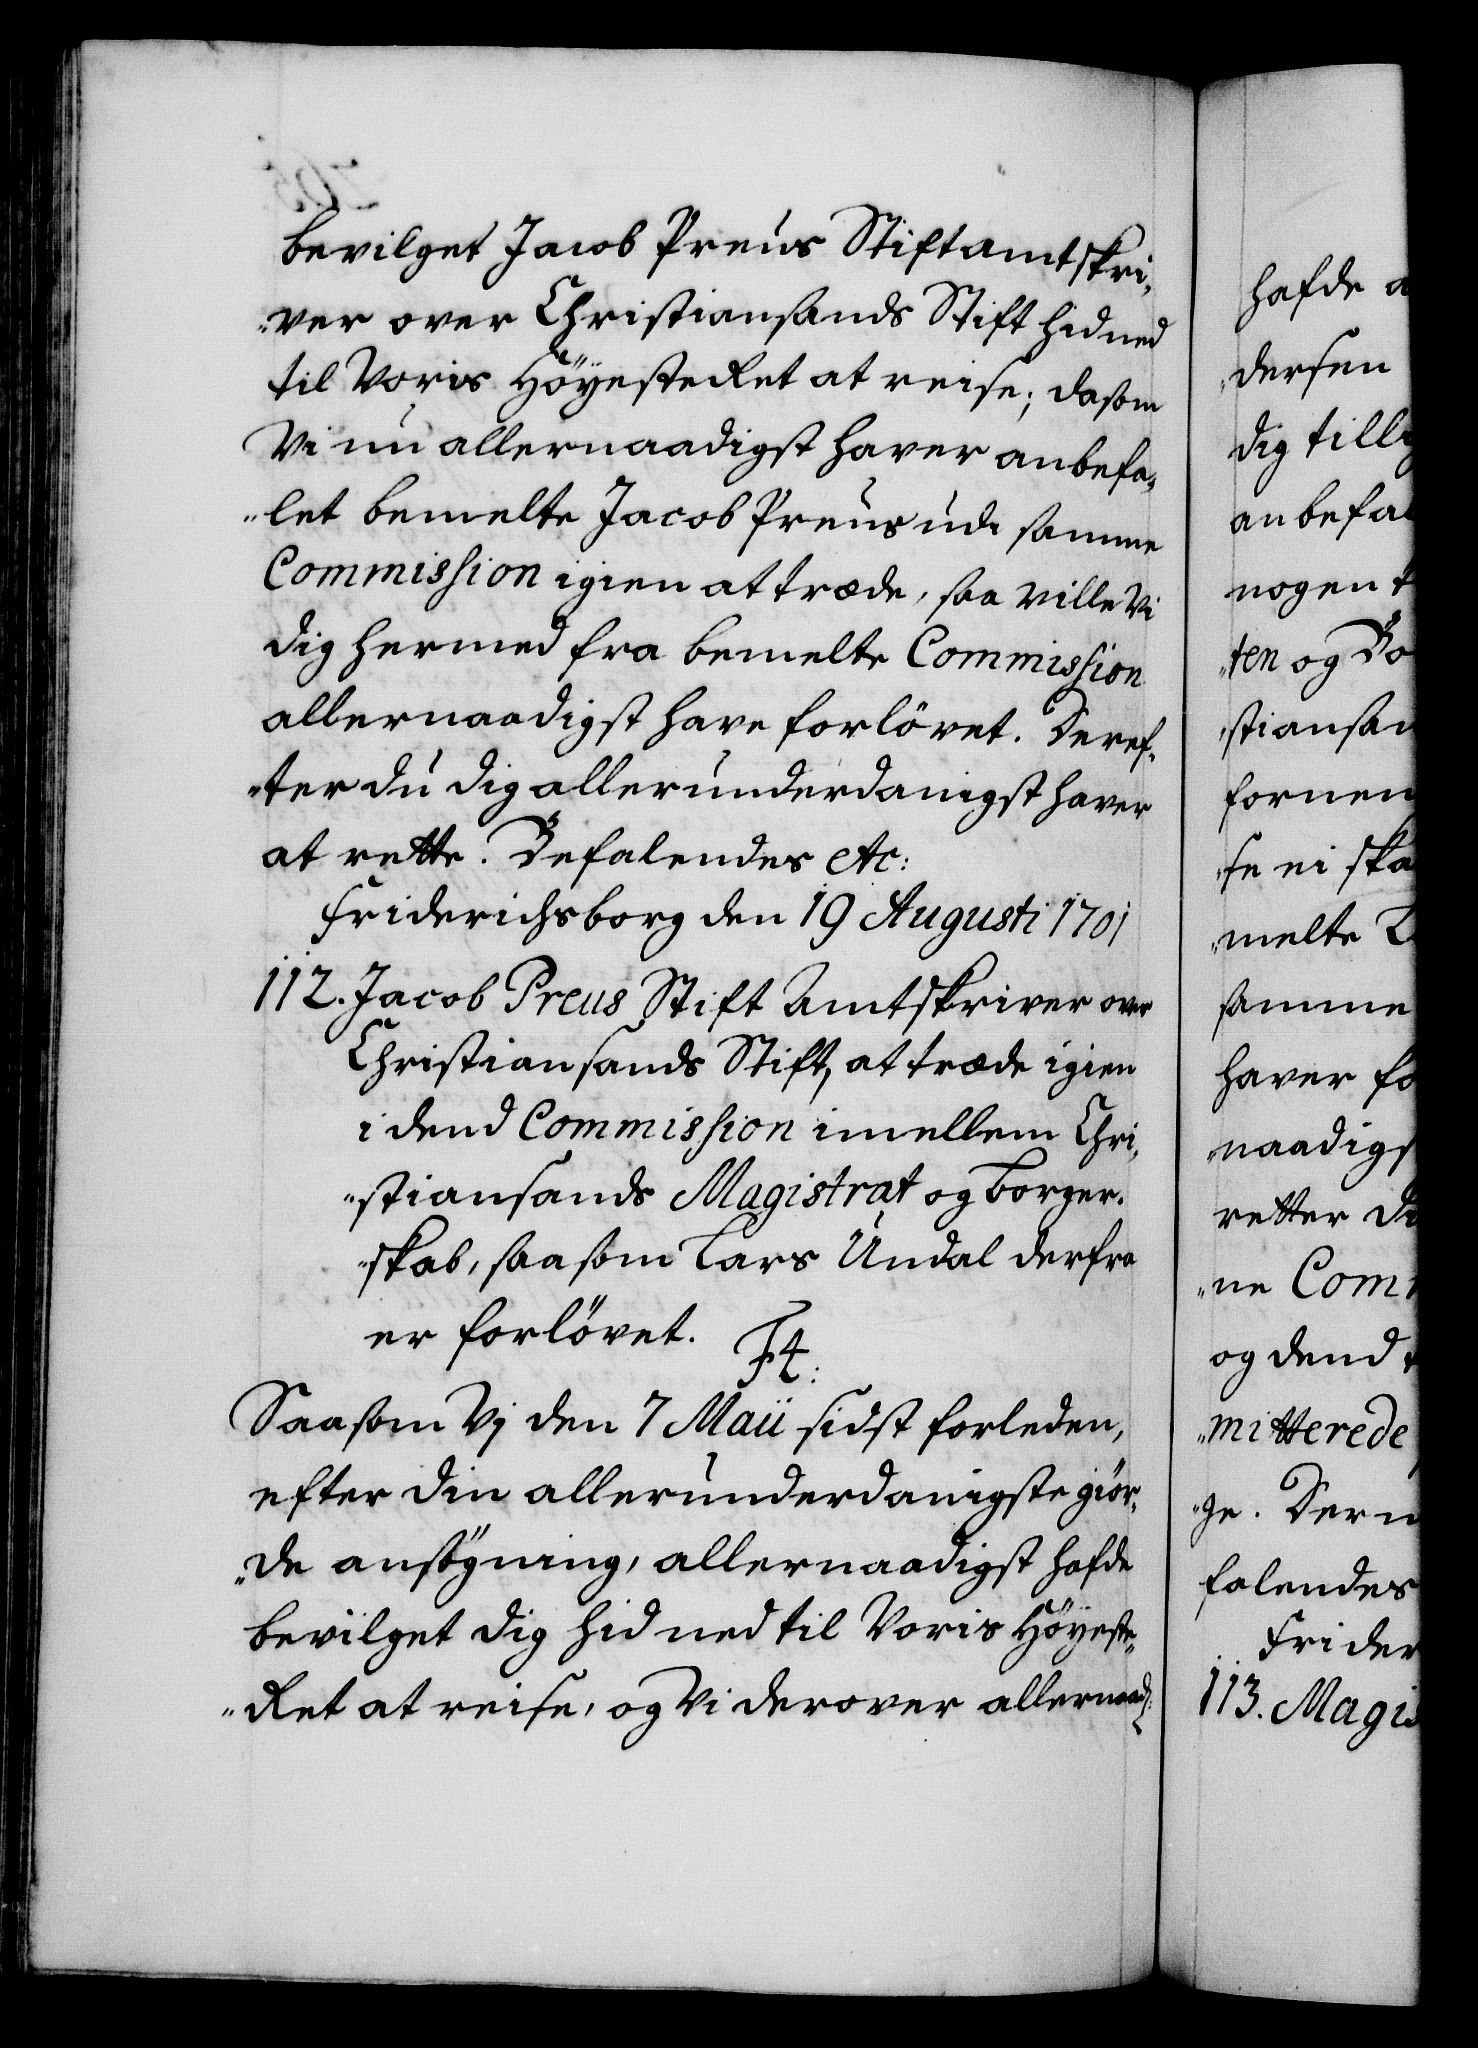 bevilget Jacob Preus Stiftamtskri,,
,,ver over Christiansands Stift hid ned
til Voris Höyeste Ret at reise; da som
Vi nu allernaadigst haver anbefa,,
,,let bemelte Jacob Preus udi samme
Commission igien at træde, saa ville Vi
dig hermed fra bemelte Commission
allernaadigst have forlövet. Deref,,
,,ter du dig allerunderdanigst haver
at rette. Befalendes etc:
Friderichsborg den 19 Augusti 1701
112. Jacob Preus Stift Amtskriver over
Christiansands Stift, at træde igien
i dend Commission imellem Chri,,
,,stiansands Magistrat og borger,,
,,skab, saasom Lars Undal derfra
er forlövet.
F4:
Saasom Vj den 7 Maii sidst forleden,
efter din allerunderdanigste giör,,
,,de ansögning, allernaadigst hafde
bevilget dig hid ned til Voris Höyeste,,
,,Ret at reise, og Vi derover allernaad:
hafde a
,,dersen
dig till
anbefal
nogen t
,,ten og Bo
,,stiansan
fornem
,,se ei ska
,,melte L
samme
haver fo
,,naadigs
retter di
,,ne Com
og dend
,,mitterede
,,ge. Der
falendes
Frider
113. Magis